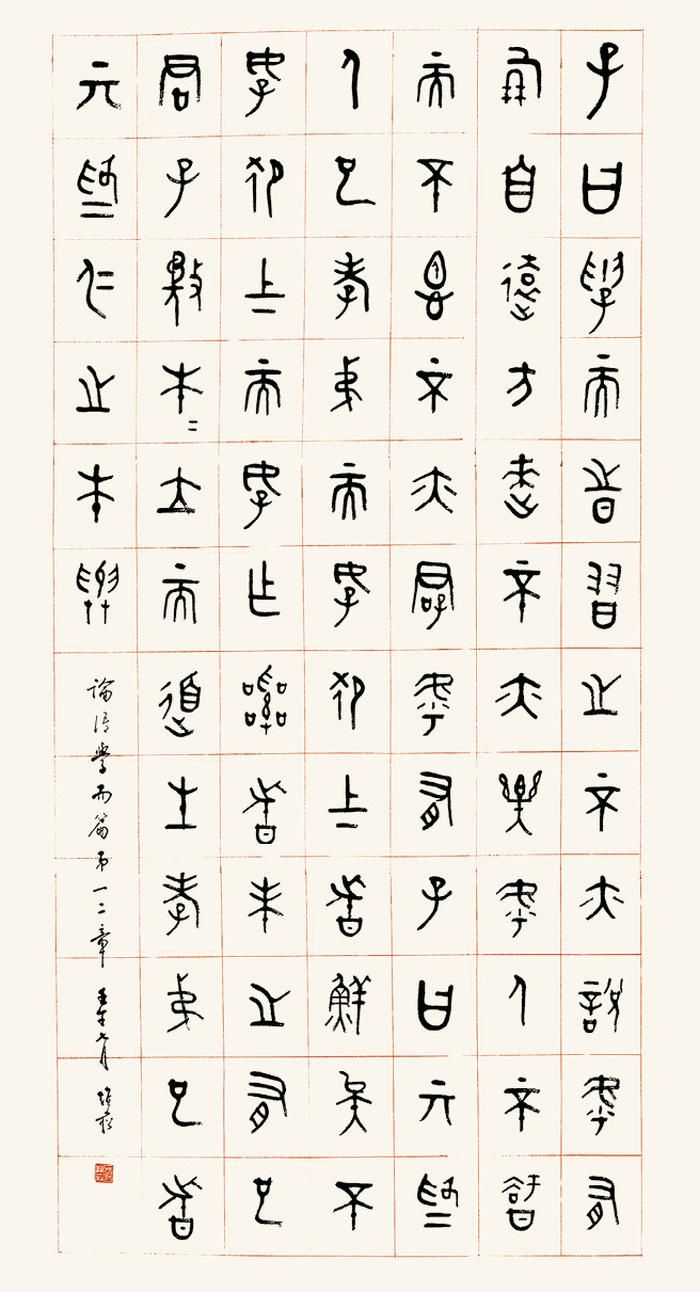 子曰學而時習之不亦說乎有
朋自遠方來不亦樂乎人不知
而不慍不亦君子乎有子曰其為
人也孝弟而好犯上者鮮矣不
好犯上而好作亂者未之有也
君子務本=立而道生孝弟也者
其為仁之本與
論語學而篇第一二章 壬午七月